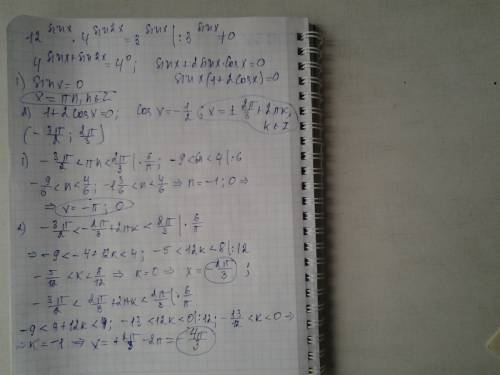 12^sinx · 4^sin2x = 3^sinx |: 3^sinx ≠ 0
4^sinx+sin2x = 4^0; sinx+2sinx·cosx=0
1) sinx=0 sinx(1+2cosx)=0
x=πn; n∈Z
2) 1+2cosx=0; cosx=-1/2; x=±2π/3+2πk, k∈Z
(-3π/2; 2π/3)
1) -3π/2 < πn < 2π/3 |·6/π; -9<6n<4 |:6
-9/6 < n < 4/6; -1 3/6 < n < 4/6 ⇒ n=-1; 0 ⇒
⇒ x=-π; 0
2) -3π/2 < -2π/3+2πk < 2π/3 |·6/π
⇒ -9<-4+12k<4; -5<12k<8 |:12
-5/12 < k < 8/12 ⇒ k=0 ⇒ x=-2π/3;
-3π/2 < 2π/3+2πk < 2π/3 |·6/π
-9<4+12k<4; -13<12k<0 |:12; -13/12 < k < 0 ⇒
⇒ k=-1 ⇒ x=+2π/3-2π=-4π/3